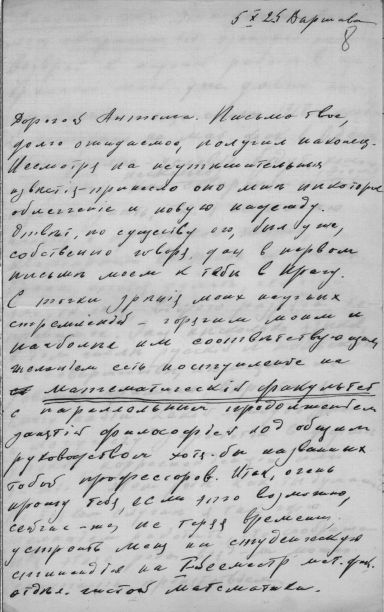 5 X 25 Варшава
8
Дорогой Антоша. Письмо твое,
долго ожидаемое, получил наконец.
Несмотря на неутешительныя
извѣстiя – принесло оно мнѣ нѣкоторое
облегченiе и новую надежду.
Отвѣт, по существу его, был уже,
собственно говоря, дан в первом
письмѣ моем к тебѣ в Прагу.
С точки зрѣнiя моих научных
стремленiй – горячим моим и
наиболѣе им соотвѣтствующим
желанiем есть поступленiе на
математическiй факультет
с параллельным продолженiем
занятiй философiей под общим
руководством хотя-бы названных
тобой профессоров. Итак, очень
прошу тебя, если это возможно,
сейчас-же, не теряя времени,
устроить меня на студенческую
стипендiю на I семестр мат. фак.
отдѣл. чистой математики.